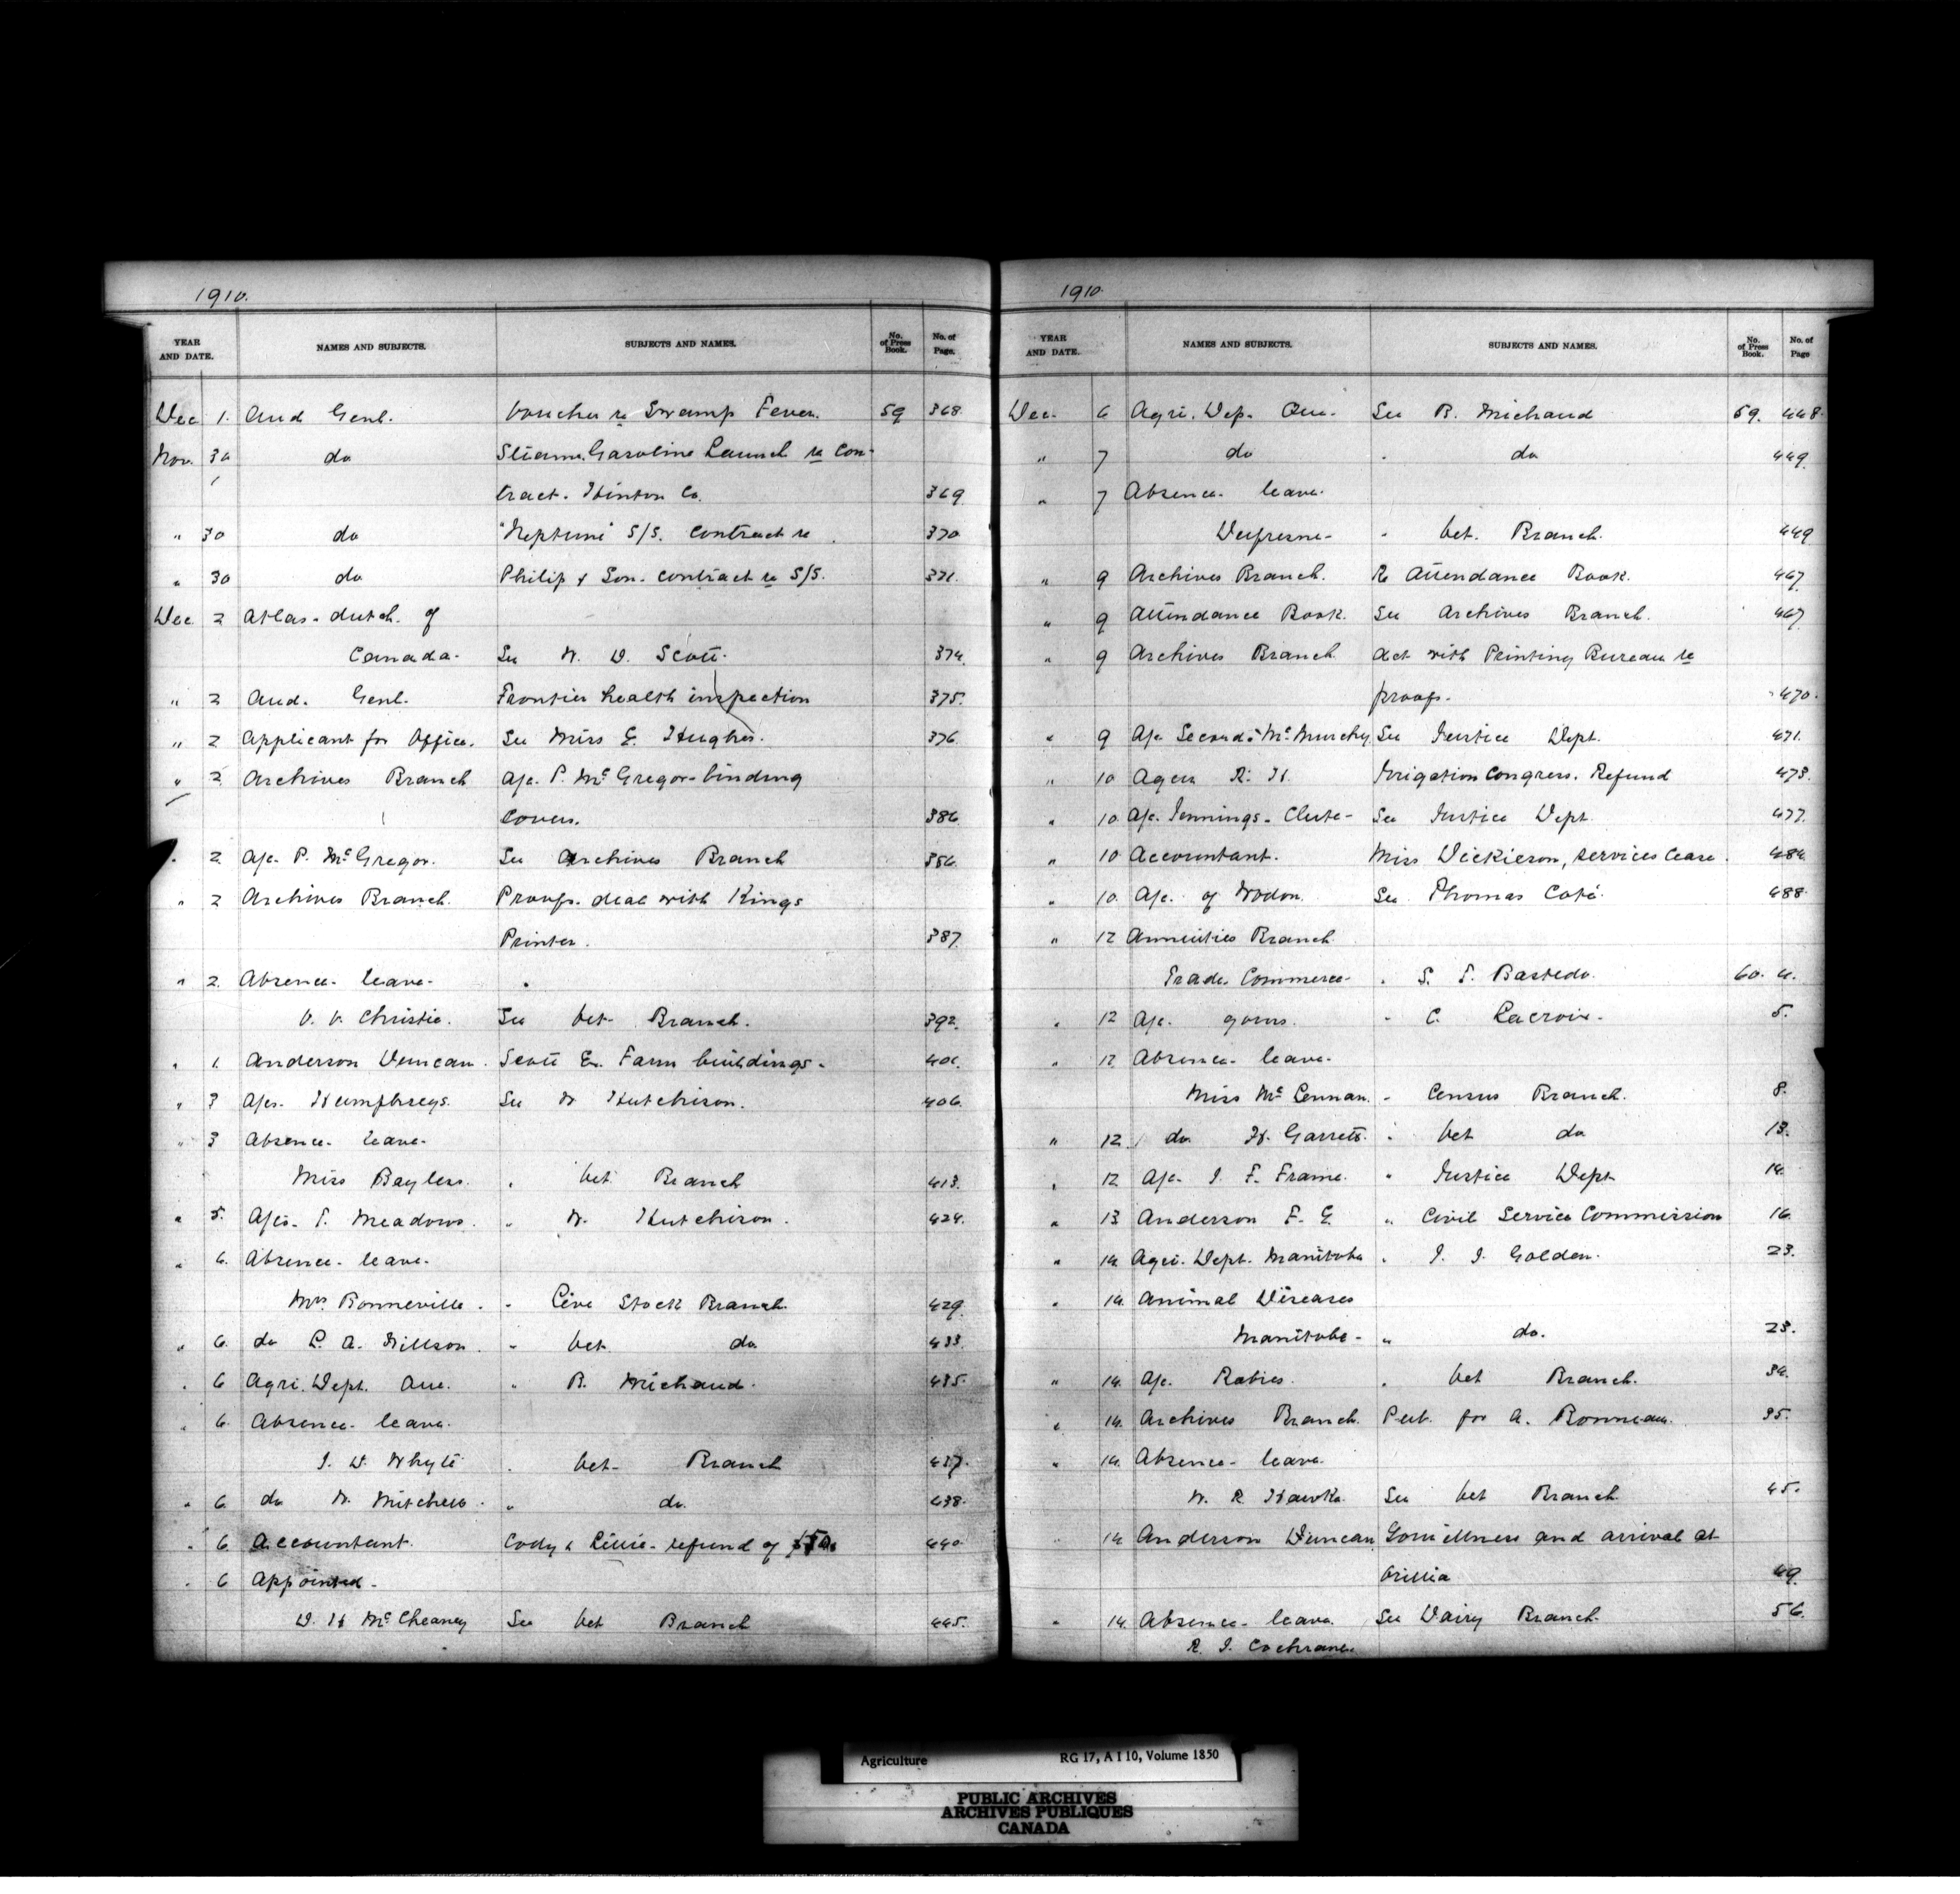 1910.
YEAR AND DATE. NAMES AND SUBJECTS. SUBJECTS AND NAMES. No. of Press Book. No. of Page.
Dec 1. Aud Genl. Voucher re Swamp Fever. 59 368.
Nov. 30 do Steam, Gasoline Launch re Con-
1 tract. Hinton Co. 369
" 30 do "Neptune" S/S. Contract re 370
" 30 do Philip & Son. contract re S/S. 371.
Dec 2 Atlas. dutch. of
Canada. See W. D. Scott. 374.
" 2 Aud. Genl. Frontier health inspection 375.
" 2 Applicant for Office. See Miss E. Hughes. 376.
" 2 Archives Branch A/c. P. McGregor - binding
Covers. 386
" 2 A/c. P. McGregor. See Archives Branch 386
" 2 Archives Branch. Proofs. deal with Kings
Printer. 387.
" 2. Absence - leave -
V. V. Christie. See Vet. Branch. 392.
" 1. Anderson Duncan. Scott E. Farm buildings.
" 3 A/cs. Humphreys. See W Hutchison. 406.
" 3 Absence - leave -
Miss Bayless. " Vet Branch 413.
" 5. A/cs. T. Meadows. " W. Hutchison. 424.
" 6. Absence - leave.
Mrs Bonneville. " Live Stock Branch. 429.
" 6. do L. A. Willson. " Vet. do 433
" 6 Agri. Dept. Que. " R. Michaud. 435.
" 6. Absence - leave.
J. D. Whyte " Vet - Branch 437.
" 6. do W. Mitchell. " do. 438.
" 6. Accountant. refund of 440
" 6 Appointed -
D. H McCheaney See Vet Branch 445.
1910.
YEAR AND DATE. NAMES AND SUBJECTS. SUBJECTS AND NAMES. No. of Press Book. No. of Page
Dec. 6 Agri. Dep. Que. See R. Michaud 59. 448.
" 7 do " do 449.
" 7 Absence - leave.
Dufresne - " Vet. Branch. 449
" 9 Archives Branch. Re Attendance Book. 467.
" 9 Attendance Book. See Archives Branch. 467
" 9 Archives Branch. Act with Printing Bureau re
proofs. 470.
" 9 A/c Secord & McMurchy See Justice Dept. 471.
" 10 Ager R. H. Irrigation Congress. Refund 473.
" 10. A/c. Jennings - Clute - See Justice Dept 477.
" 10 Accountant. Miss Dickieson, services cease. 484.
" 10. A/c. of Wodon. See Thomas Coté. 488.
" 12 Annuities Branch
Trade. Commerce - " S. T. Bastedo. 60. 4.
" 12 A/c. yours. " C. Lacroix. 5.
" 12 Absence - leave.
Miss McLennan. " Census Branch. 8.
" 12. do H. Garrett. " Vet do 13.
" 12 A/c. J. F. Frame. " Justice Dept 14.
" 13 Anderson F. E. " Civil Service Commission 16.
" 14 Agri. Dept. Manitoba " J. J. Golden. 23.
" 14. Animal Diseases
Manitoba - " do. 23.
" 14. A/c. Rabies. " Vet Branch. 34.
" 14. Archives Branch. Pub. for A. Bonneau. 35.
" 14. Absence - leave.
W. R. Hawke. See Vet Branch 45.
" 14 Anderson Duncan and arrival at
Orillia 49.
" 14. Absence - leave. See Dairy Branch. 56.
R. J. Cochrane.
Agriculture RG 17, A I 10, Volume 1850
PUBLIC ARCHIVES
ARCHIVES PUBLIQUES
CANADA